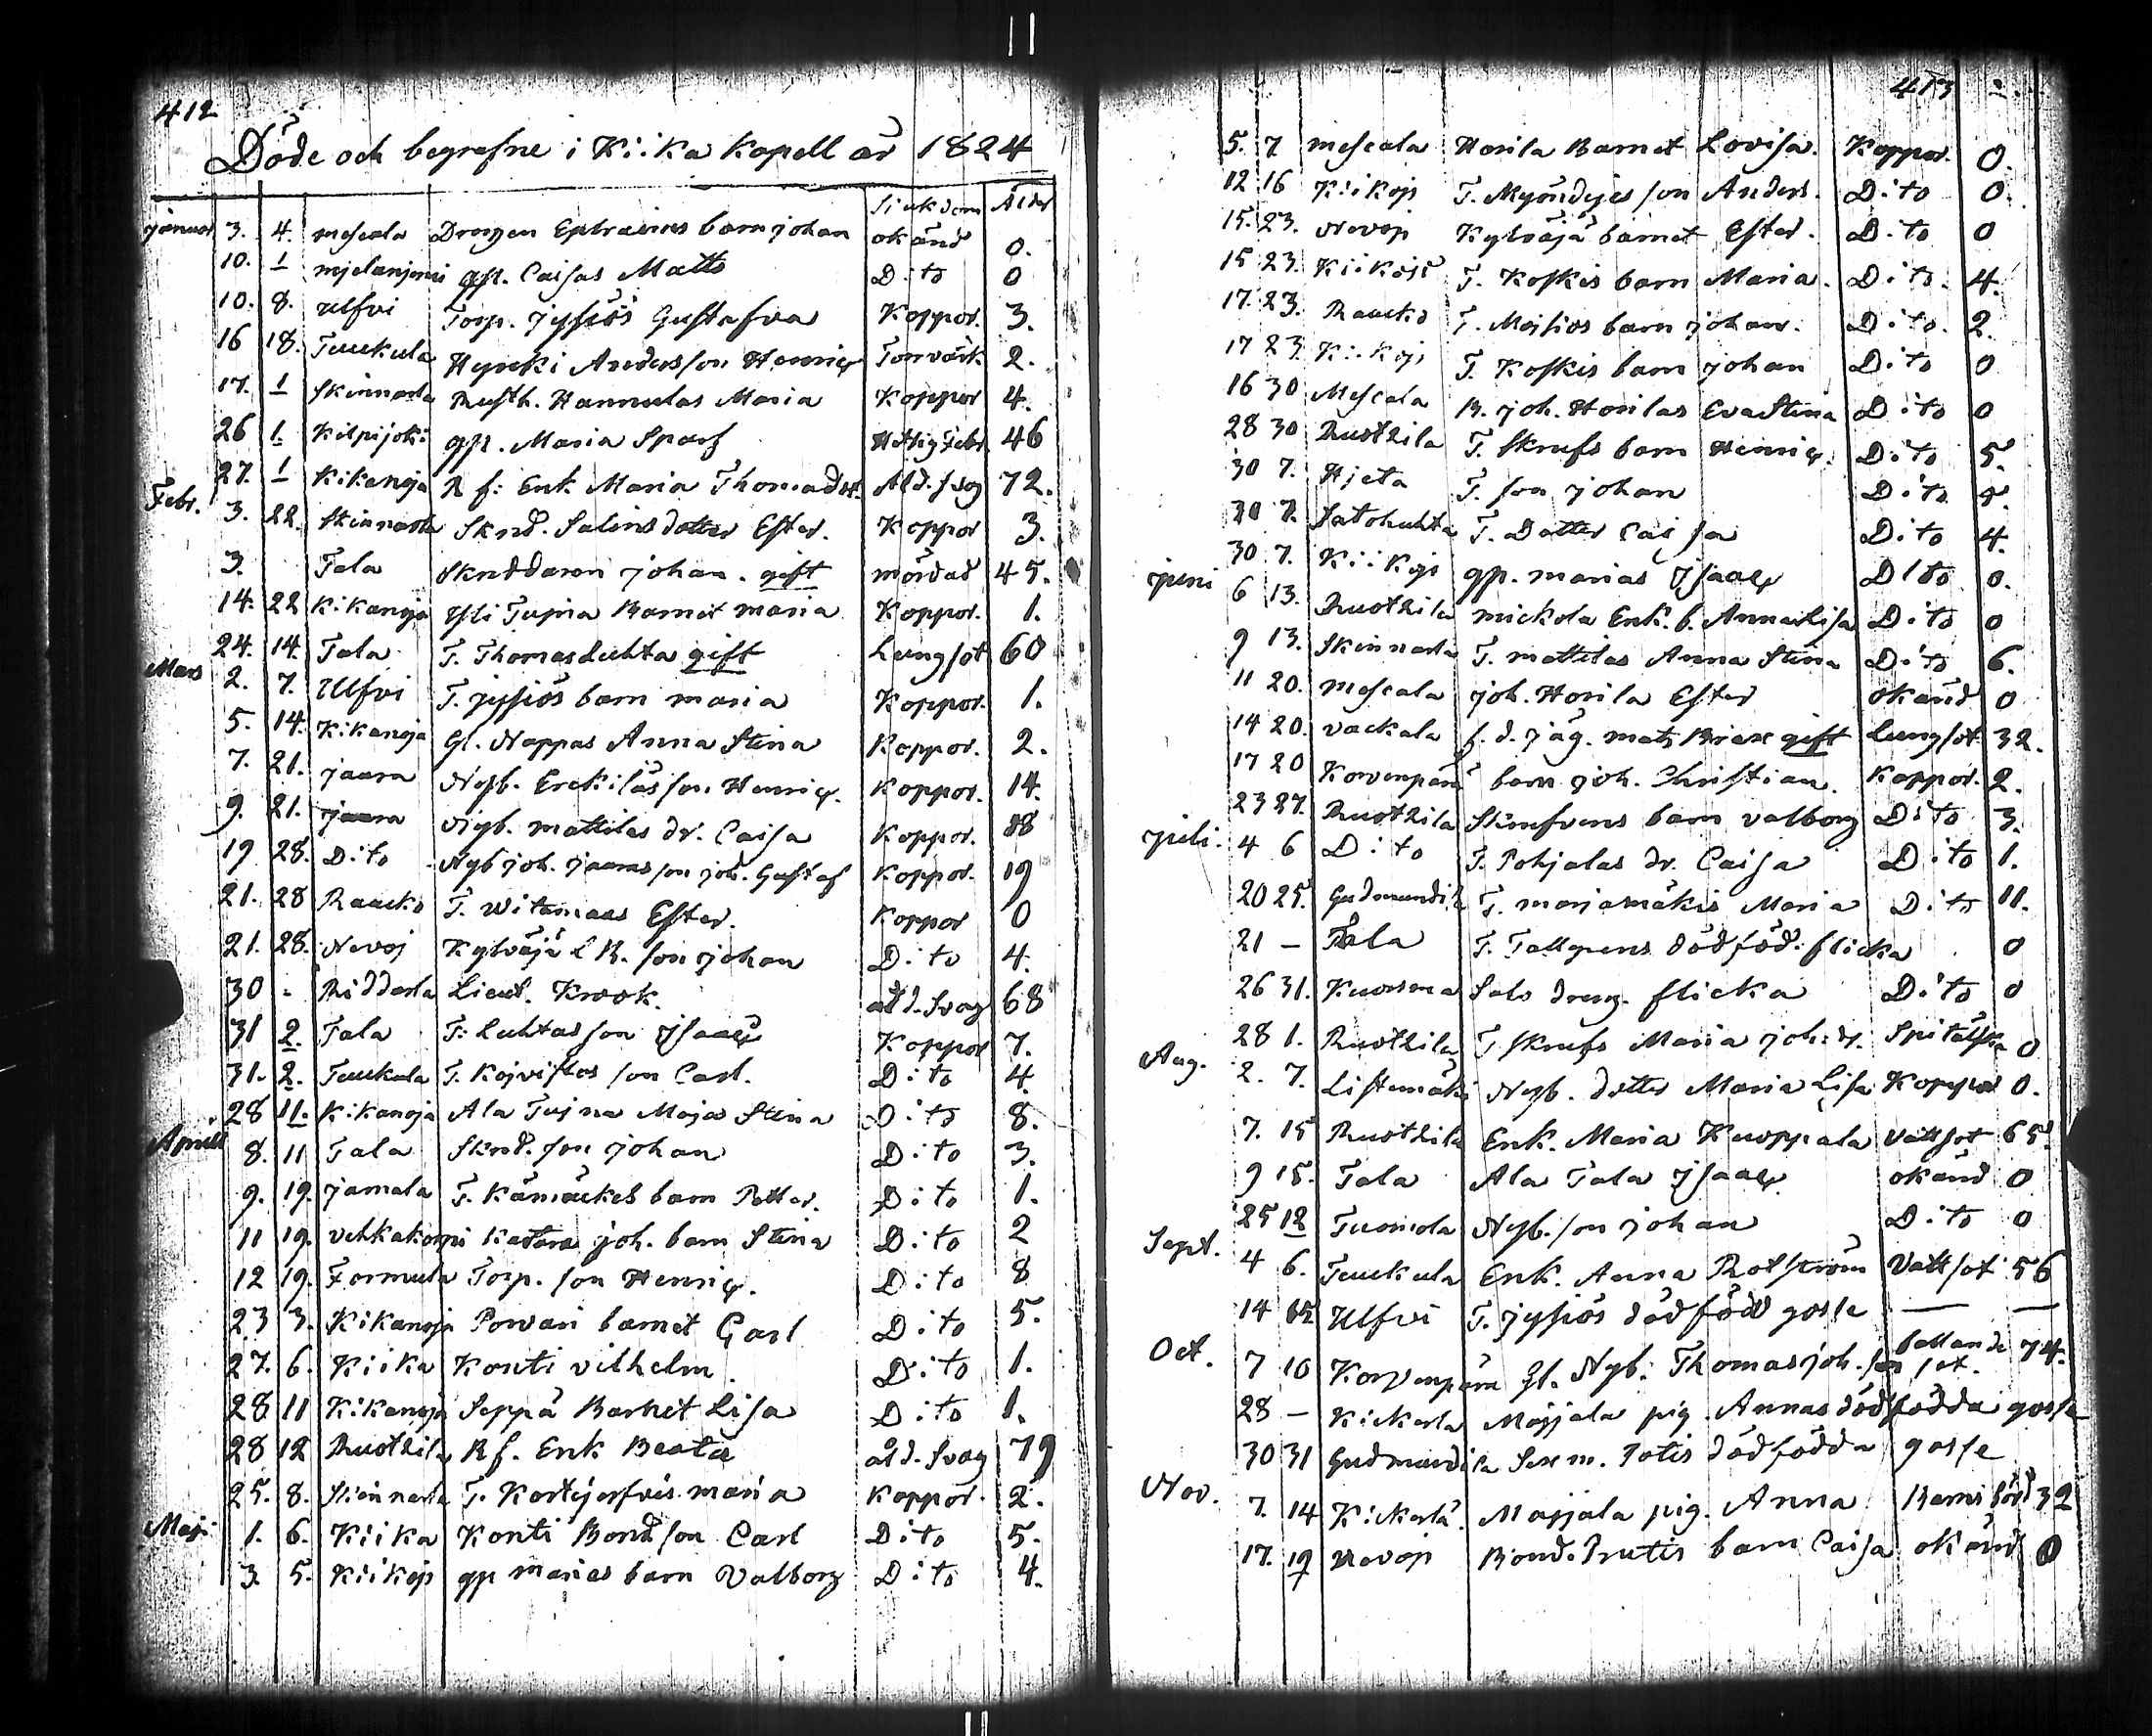 412
Döde och begrafne i Kiika Kapell år 1824
Siukdom Ålder
januar 3. 4. mescala Drengen Ephraims barn johan okänd 0.
10. 1 mjelanjemi qp. Caisas Matts Dito 0
10. 8. Ulfvi Torp. jysiös Gustafva Koppor. 3.
16 18. Tuukula Hyreki Andersson Henric Torrvärk 2.
17. 1 Skinnarla Rusth. Hannulas Maria Koppor 4.
26 1. Kilpijoki qp. Maria Sparf Hettig Febr 46
27. 1 Kikanoja R f: Enk. Maria Thomadr. Åld. svag 72.
Febr. 3. 22. Skinnarla Sknd. Salins dotter Ester. Koppor 3.
3. Tala Skreddaren johan. gift mördad 45.
14. 22 Kikanoja Yli Tujna Barnet maria Koppor. 1.
24. 14. Tala T. Thomas Luhta gift Lungsot 60
Mars 2. 7. Ulfvi T. jysiös barn maria Koppor. 1.
5. 14. Kikanoja Gl. Noppas Anna Stina Koppor. 2.
7. 21. jaara Nyb. Erckiläs son Henric. Koppor. 14.
9. 21. jaara Nyb. mattilas dr. Caisa Koppor. 18
19 28. Dito Nyb joh. jaaras son joh. Gustaf Koppor. 19
21. 28 Raucko T. Witamaas Ester. Koppor 0
21. 28. Novoj Kylväjä L B. son johan Dito 4.
30 - Ridderla Lieut. Krook. åld. svag 68
31 2. Tala T. Luhtas son Isaac Koppor 7.
31. 2. Tuukula T. Kojvistos son Carl. Dito 4.
28 11. Kikanoja Ala Tujna Maja Stina Dito 8.
Aprill 8. 11 Tala Sknd. son johan Dito 3.
9. 19. jamala T. Kämäckes barn Petter. Dito 1.
11 19. vehkakorpi Katara joh. barn Stina Dito 2
12 19. Formula Torp. son Henric. Dito 8
23 3. Kikanoja Porvari barnet Carl Dito 5.
27. 6. Kiika Konti vilhelm. Dito 1.
28 11 Kikanoja Seppä Barnet Lisa Dito 1.
28 12 Ruotzila R f. Enk Beata åld. svag 79
25. 8. Skinnarla T. Kortejerfvis maria Koppor. 2.
Maji 1. 6. Kiika Konti Bond son Carl Dito 5.
3. 5. Kiikojs qp marias barn Valborg Dito 4.
413
5. 7 mescala Horila Barnet Lovisa. Koppor. 0.
12 16 Kiikojs T. Myöndyjes son Anders. Dito 0.
15. 23. Novojs Kylväjä barnet Ester. Dito 0
15 23. Kiikojs T. Koskis barn Maria. Dito. 4.
17. 23. Raucko T. Mojsios barn johan. Dito. 2.
17 23 Kiikojs T. Koskis barn johan Dito 0
16 30 Mescala B. joh. Horilas Eva Stina Dito 0
28 30 Ruotzila T. Skrufs barn Henric. Dito 5.
30 7. Hjeta T. son johan Dito
30 7. Satohuhta T. Dotter Caisa Dito 4.
30 7. Kiikojs qp. marias Isaac Dito 0.
juni 6 13. Ruotzila mickola Enk. b. Anna Lisa Dito 0
9 13. Skinnarla T. mattilas Anna Stina Dito 6.
11 20. mescala joh. Horila Ester okänd 0
14 20. vackala f. d. jäg. mats Briax gift Lungsot. 32.
17 20 Korvenpää barn joh. Christian. Koppor. 2.
23 27. Ruotzila Skrufvens barn valborg Dito 3.
juli. 4 6 Dito T. Pohjalas dr. Caisa Dito 1.
20 25. Gudmundila T. marjamäkis Maria Dito 11.
21 - Tala T. Tallgrens dödföd. flicka 0
26 31. Kuorsma Salo dreng. flicka Dito 0
28 1. Ruotzila T Skrufs Maria joh: dr. Spitälska 0
Aug. 2. 7. Listemäki Nyb. dotter Maria Lisa Koppor 0.
7. 15 Ruotzila Enk. Maria Kuoppala Vattsot 65.
9 15. Tala Ala Tala Isaac okänd 0
25 12 Tuomola Nyb. son johan Dito 0
Sept. 4 6. Tuukula Enk. Anna Rotström Vattsot 56
14 15 Ulfvi T. jysiös dödfödd gosse — —
Oct. 7 10 Korvenpää Gl. Nyb. Thomas joh. son fallande sot. 74.
28 - Kickerla Majjala pig. Annas dödfödda gosse
30 31 Gudmundila Sexm. Potis dödfödda gosse
Nov. 7. 14 Kickerla. Majjala pig. Anna Barnsbörd 32
17. 19 Novojs Bond. Prutis barn Caisa okänd 0